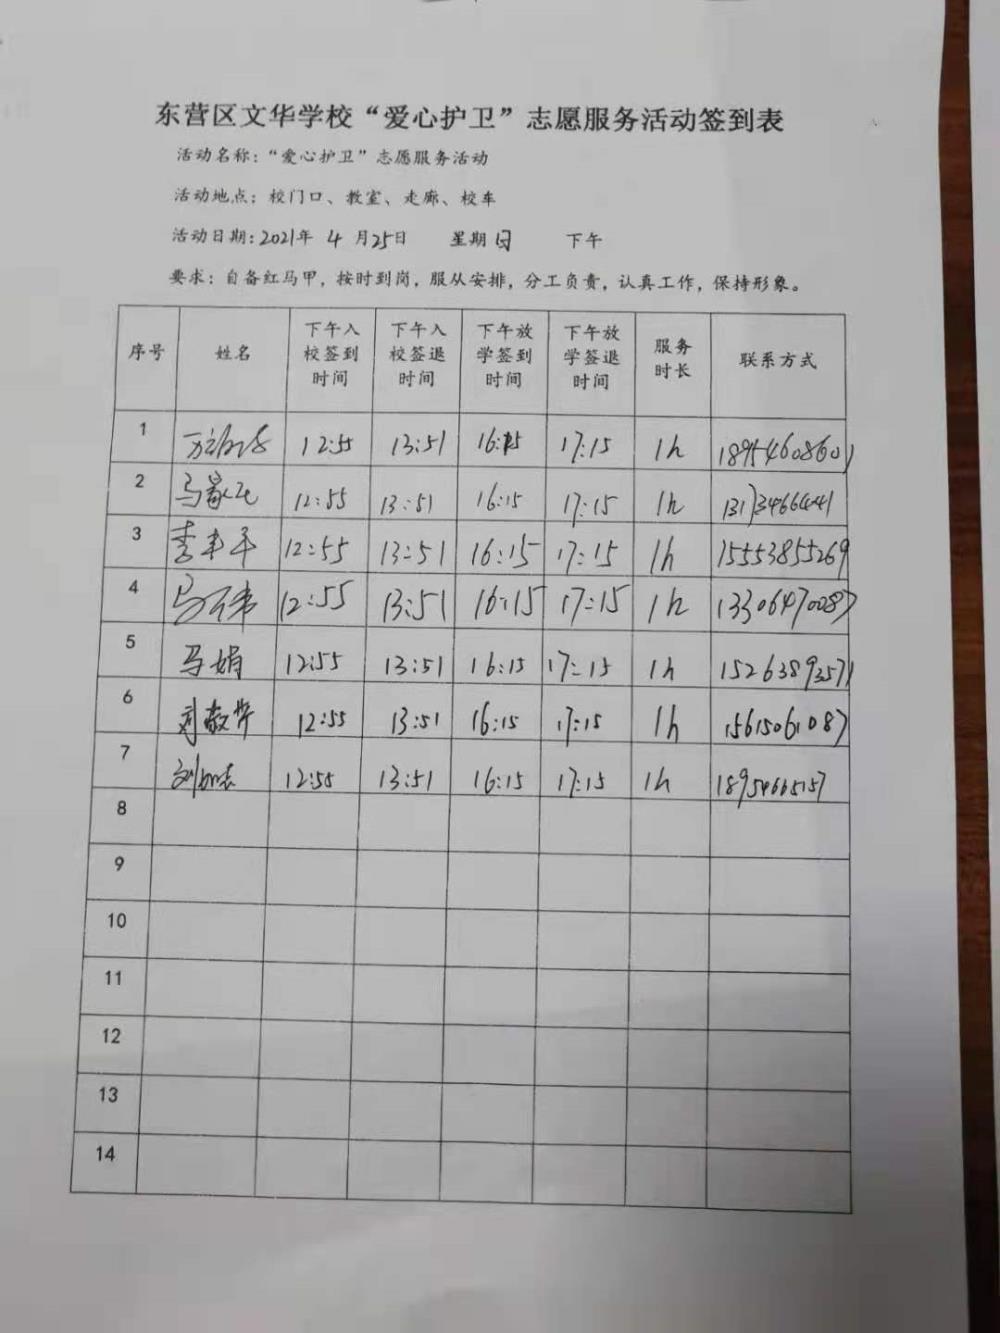 东营区文华学校“爱心护卫”志愿服务活动签到表
活动名称：“爱心护卫”志愿服务活动
活动地点：校门口、教室、走廊、校车
活动日期：2021年 4 月25日 星期日 下午
要求：自备红马甲，按时到岗，服从安排，分工负责，认真工作，保持形象。
序号 姓名 下午入校签到时间 下午入校签退时间 下午放学签到时间 下午放学签退时间 服务时长 联系方式
1 12:55 13:51 16:15 17:15 1h 18954608601
2 马 12:55 13:51 16:15 17:15 1h
3 李 12:55 13:51 16:15 17:15 1h 15553855269
4 马 12:55 13:51 16:15 17:15 1h 13306470087
5 马娟 12:55 13:51 16:15 17:15 1h 15263893571
6 刘 12:55 13:51 16:15 17:15 1h 15615061087
7 刘 12:55 13:51 16:15 17:15 1h 18954665157
8
9
10
11
12
13
14